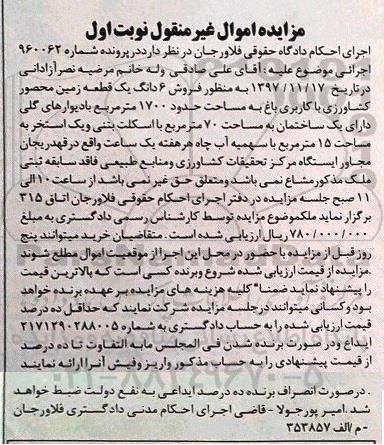 مزایده اموال غیر منقول نوبت اول
اجرای احکام دادگاه حقوقی فلاورجان در نظر دارد در پرونده شماره ۹۶۰۰۶۲
اجرائی موضوع علیه : آقای علی صادقی وله خانم مرضیه نصر آزادانی
در تاریخ ۱۳۹۷/۱۱/۱۷ به منظور فروش ۶ دانگ یک قطعه زمین محصور
کشاورزی با کاربری باغ به مساحت حدود ۱۷۰۰ مترمربع با دیوارهای گلی
دارای یک ساختمان به مساحت ۷۰ مترمربع با اسکلت بتنی ویک استخر به
مساحت ۱۵ مترمربع با سهمیه آب چاه هر هفته یک ساعت واقع در قهدریجان
مجاور ایستگاه مرکز تحقیقات کشاورزی ومنابع طبیعی فاقد سابقه ثبتی
ملک مذکور مشاع نمی باشد ومتعلق حق غیر نمی باشد از ساعت ۱۰ الی
۱۱ صبح جلسه مزایده در دفتر اجرای احکام حقوقی فلاورجان اتاق ۳۱۵
برگزار نماید ملکموضوع مزایده توسط کارشناس رسمی دادگستری به مبلغ
۷۸۰/۰۰۰/۰۰۰ ریال ارزیابی شده است . متقاضیان خرید میتوانند پنج
روز قبل از مزایده با حضور در محل این اجرا از موقعیت اموال مطلع شوند
.مزایده از قیمت ارزیابی شده شروع وبرنده کسی است که بالاترین قیمت
را پیشنهاد نماید ضمنا" کلیه هزینه های مزایده بر عهده برنده خواهد
بود و کسانی میتوانند در جلسه مزایده شرکت نمایند که حداقل ده درصد
قیمت ارزیابی شده را به حساب دادگستری به شماره ۲۱۷۱۲۹۰۲۸۸۰۰۵
ایداع ودر صورت برنده شدن فی المجلس مابه التفاوت تا ده درصد
از قیمت پیشنهادی را به حساب مذکور واریز وفیش آنرا ارائه نمایند
. در صورت انصراف برنده ده درصد ایداعی به نفع دولت ضبط خواهد
شد .امیر پورجولا - قاضی اجرای احکام مدنی دادگستری فلاورجان
- م /الف ۳۵۳۸۵۷